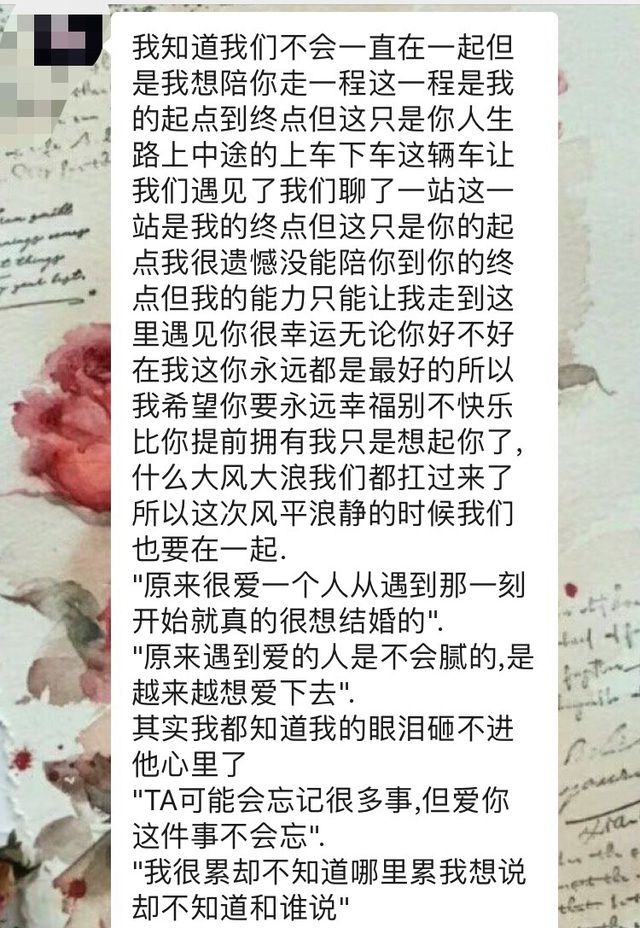 我知道我们不会一直在一起但
是我想陪你走一程这一程是我
的起点到终点但这只是你人生
路上中途的上车下车这辆车让
我们遇见了我们聊了一站这一
站是我的终点但这只是你的起
点我很遗憾没能陪你到你的终
点但我的能力只能让我走到这
里遇见你很幸运无论你好不好
在我这你永远都是最好的所以
我希望你要永远幸福别不快乐
比你提前拥有我只是想起你了,
什么大风大浪我们都扛过来了
所以这次风平浪静的时候我们
也要在一起.
"原来很爱一个人从遇到那一刻
开始就真的很想结婚的".
"原来遇到爱的人是不会腻的,是
越来越想爱下去".
其实我都知道我的眼泪砸不进
他心里了
"TA可能会忘记很多事,但爱你
这件事不会忘".
"我很累却不知道哪里累我想说
却不知道和谁说"